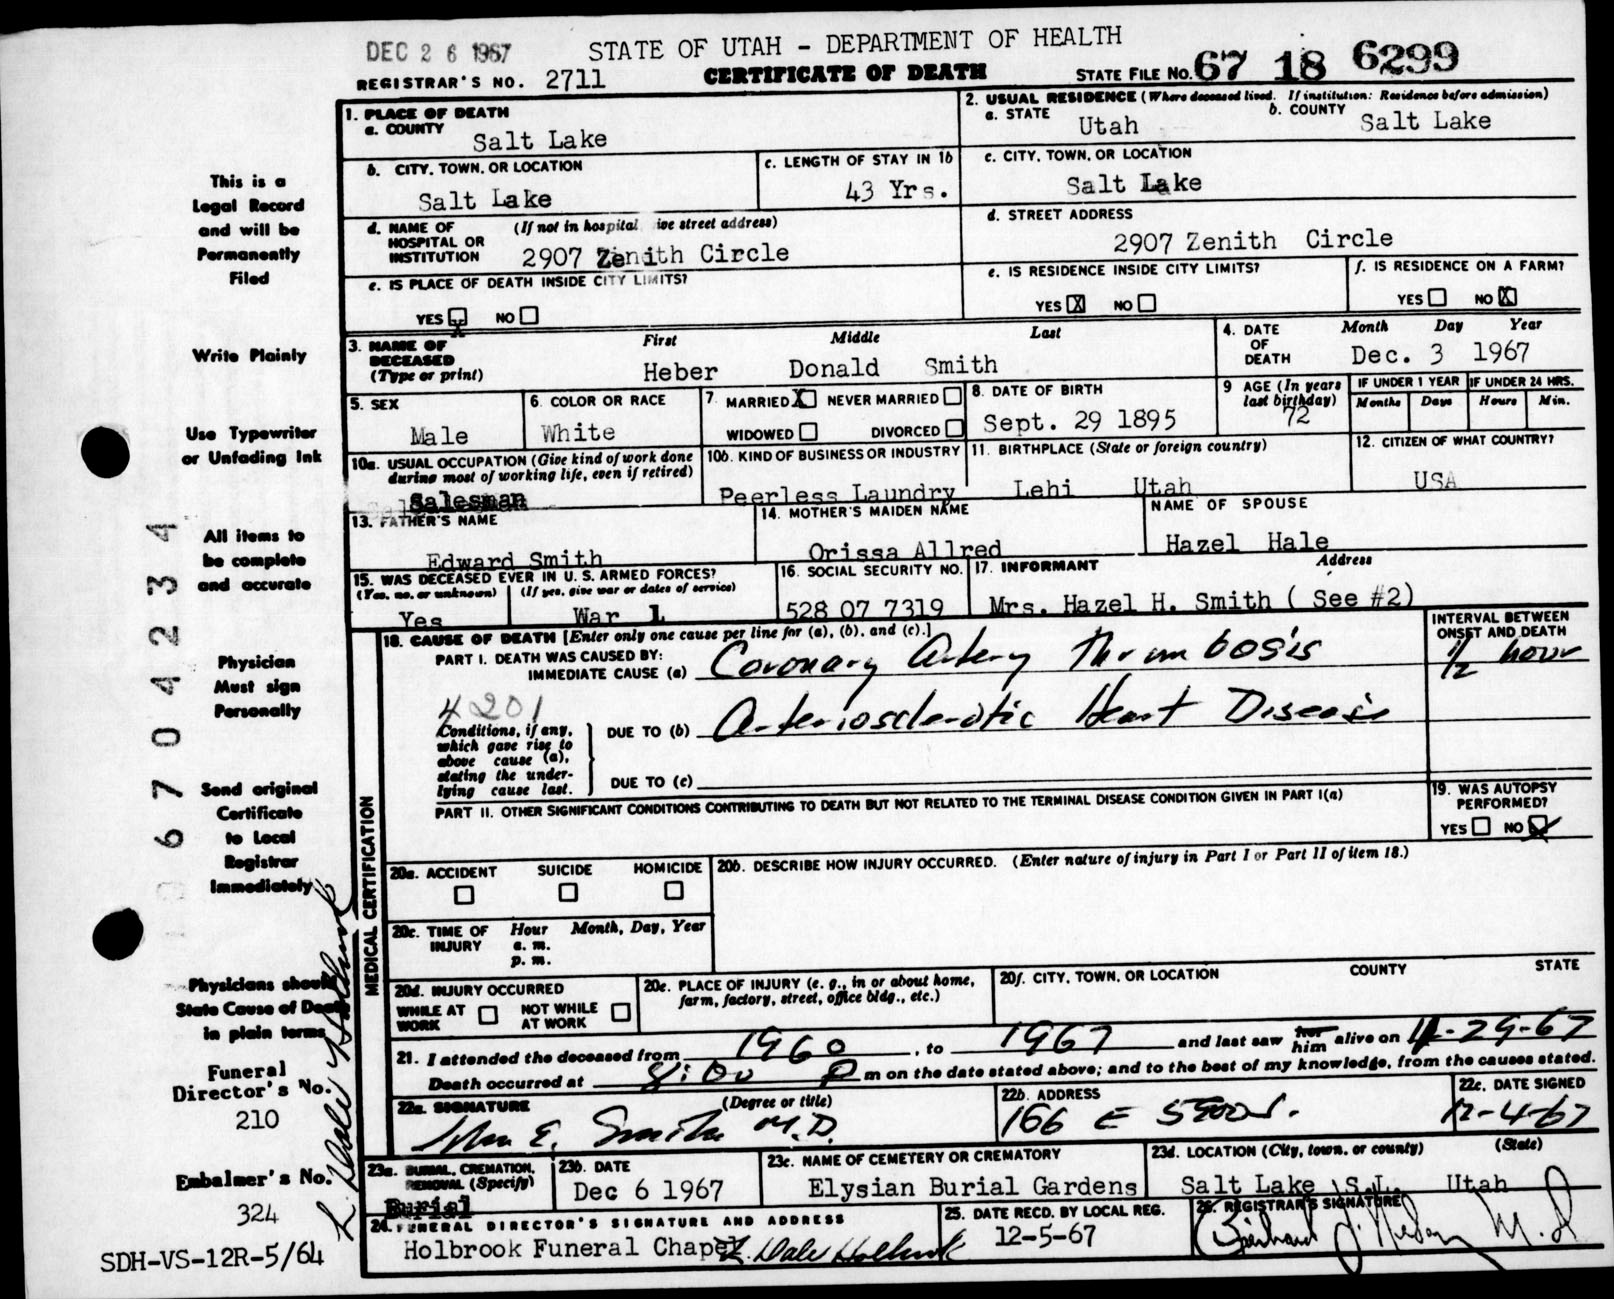 DEC 26 1967
STATE OF UTAH - DEPARTMENT OF HEALTH
REGISTRAR'S NO. 2711
CERTIFICATE OF DEATH
STATE FILE NO. 67 18 6299
This is a
Legal Record
and will be
Permanently
Filed
Write Plainly
Use Typewriter
or Unfading Ink
All items to
be complete
and accurate
Physician
Must sign
Personally
Send original
Certificate
to Local
Registrar
Immediately
Physicians should
State Cause of Death
in plain terms
Funeral
Director's No.
210
Embalmer's No.
324
SDH-VS-12R-5/64
67042234
L. Dale Holbrook
1. PLACE OF DEATH
a. COUNTY
Salt Lake
2. USUAL RESIDENCE (Where deceased lived. If institution: Residence before admission)
a. STATE Utah
b. COUNTY Salt Lake
b. CITY, TOWN, OR LOCATION
Salt Lake
c. LENGTH OF STAY IN 1b
43 Yrs.
c. CITY, TOWN, OR LOCATION
Salt Lake
d. NAME OF HOSPITAL OR INSTITUTION (If not in hospital, ive street address)
2907 Zenith Circle
d. STREET ADDRESS
2907 Zenith Circle
e. IS PLACE OF DEATH INSIDE CITY LIMITS?
YES X NO
e. IS RESIDENCE INSIDE CITY LIMITS?
YES X NO
f. IS RESIDENCE ON A FARM?
YES NO X
3. NAME OF DECEASED (Type or print)
First Middle Last
Heber Donald Smith
4. DATE OF DEATH
Month Day Year
Dec. 3 1967
5. SEX
Male
6. COLOR OR RACE
White
7. MARRIED X NEVER MARRIED
WIDOWED DIVORCED
8. DATE OF BIRTH
Sept. 29 1895
9 AGE (In years last birthday)
72
IF UNDER 1 YEAR
Months Days
IF UNDER 24 HRS.
Hours Min.
10a. USUAL OCCUPATION (Give kind of work done
during most of working life, even if retired)
Salesman
10b. KIND OF BUSINESS OR INDUSTRY
Peerless Laundry
11. BIRTHPLACE (State or foreign country)
Lehi Utah
12. CITIZEN OF WHAT COUNTRY?
USA
13. FATHER'S NAME
Edward Smith
14. MOTHER'S MAIDEN NAME
Orissa Allred
NAME OF SPOUSE
Hazel Hale
15. WAS DECEASED EVER IN U. S. ARMED FORCES?
(Yes, no, or unknown) (If yes, give war or dates of service)
Yes War 1
16. SOCIAL SECURITY NO.
528 07 7319
17. INFORMANT Address
Mrs. Hazel H. Smith ( See #2)
MEDICAL CERTIFICATION
18. CAUSE OF DEATH [Enter only one cause per line for (a), (b), and (c).]
INTERVAL BETWEEN
ONSET AND DEATH
PART I. DEATH WAS CAUSED BY:
IMMEDIATE CAUSE (a) Coronary Artery Thrombosis
1/2 hour
4201
Conditions, if any,
which gave rise to
above cause (a),
stating the under-
lying cause last.
DUE TO (b) Arteriosclerotic Heart Disease
DUE TO (c)
PART II. OTHER SIGNIFICANT CONDITIONS CONTRIBUTING TO DEATH BUT NOT RELATED TO THE TERMINAL DISEASE CONDITION GIVEN IN PART I(a)
19. WAS AUTOPSY
PERFORMED?
YES NO X
20a. ACCIDENT SUICIDE HOMICIDE
20b. DESCRIBE HOW INJURY OCCURRED. (Enter nature of injury in Part I or Part II of item 18.)
20c. TIME OF INJURY
Hour Month, Day, Year
a. m.
p. m.
20d. INJURY OCCURRED
WHILE AT WORK NOT WHILE AT WORK
20e. PLACE OF INJURY (e. g., in or about home,
farm, factory, street, office bldg., etc.)
20f. CITY, TOWN, OR LOCATION COUNTY STATE
21. I attended the deceased from 1960, to 1967 and last saw her him alive on 11-29-67
Death occurred at 8:00 P m on the date stated above; and to the best of my knowledge, from the causes stated.
22a. SIGNATURE (Degree or title)
John E. Smith M.D.
22b. ADDRESS
166 E 5900 S.
22c. DATE SIGNED
12-4-67
23a. BURIAL, CREMATION,
REMOVAL (Specify)
Burial
23b. DATE
Dec 6 1967
23c. NAME OF CEMETERY OR CREMATORY
Elysian Burial Gardens
23d. LOCATION (City, town, or county) (State)
Salt Lake S.L. Utah
24. FUNERAL DIRECTOR'S SIGNATURE AND ADDRESS
Holbrook Funeral Chapel L. Dale Holbrook
25. DATE RECD. BY LOCAL REG.
12-5-67
26. REGISTRAR'S SIGNATURE
M.D